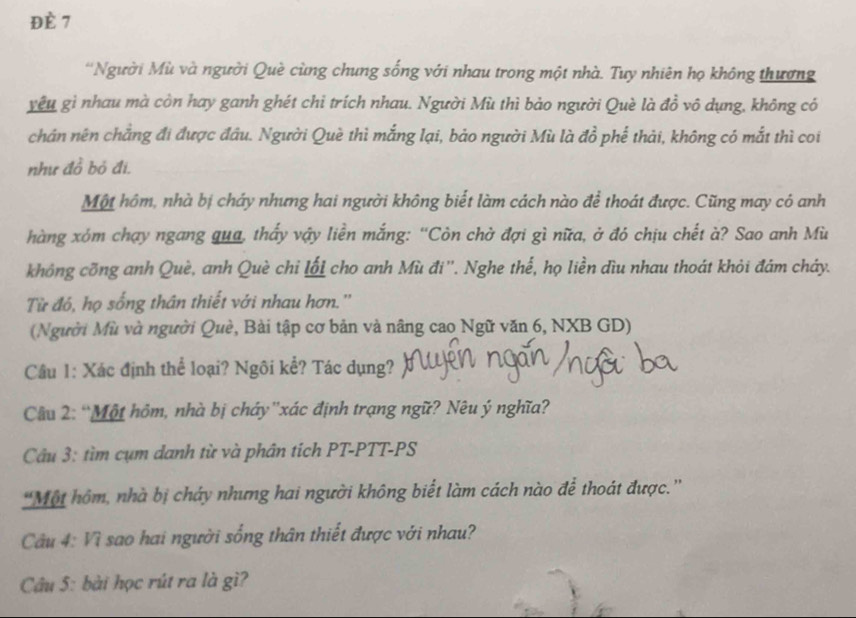 ĐÈ 7
“Người Mù và người Què cùng chung sống với nhau trong một nhà. Tuy nhiên họ không thương
yêu gì nhau mà còn hay ganh ghét chỉ trích nhau. Người Mù thì bảo người Què là đồ vô dụng, không có
chân nên chẳng đi được đâu. Người Què thì mắng lại, bảo người Mù là đồ phế thải, không có mắt thì coi
như đồ bỏ đi.
Một hôm, nhà bị cháy nhưng hai người không biết làm cách nào để thoát được. Cũng may có anh
hàng xóm chạy ngang qua, thấy vậy liền mắng: “Còn chờ đợi gì nữa, ở đó chịu chết à? Sao anh Mù
không cõng anh Què, anh Què chỉ lối cho anh Mù đi”. Nghe thế, họ liền dìu nhau thoát khỏi đám cháy.
Từ đó, họ sống thân thiết với nhau hơn.”
(Người Mù và người Què, Bài tập cơ bản và nâng cao Ngữ văn 6, NXB GD)
Câu 1: Xác định thể loại? Ngôi kể? Tác dụng? truyện ngắn / ngôi ba
Câu 2: “Một hôm, nhà bị cháy”xác định trạng ngữ? Nêu ý nghĩa?
Câu 3: tìm cụm danh từ và phân tích PT-PTT-PS
“Một hôm, nhà bị cháy nhưng hai người không biết làm cách nào để thoát được.”
Câu 4: Vì sao hai người sống thân thiết được với nhau?
Câu 5: bài học rút ra là gì?